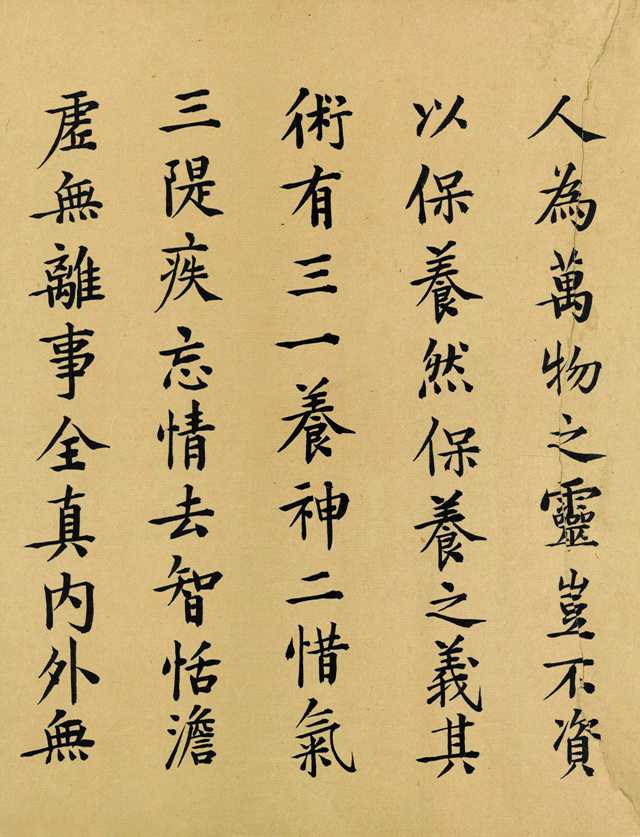 人為萬物之靈豈不資
以保養然保養之義其
術有三一養神二惜氣
三隄疾忘情去智恬澹
虛無離事全真内外無